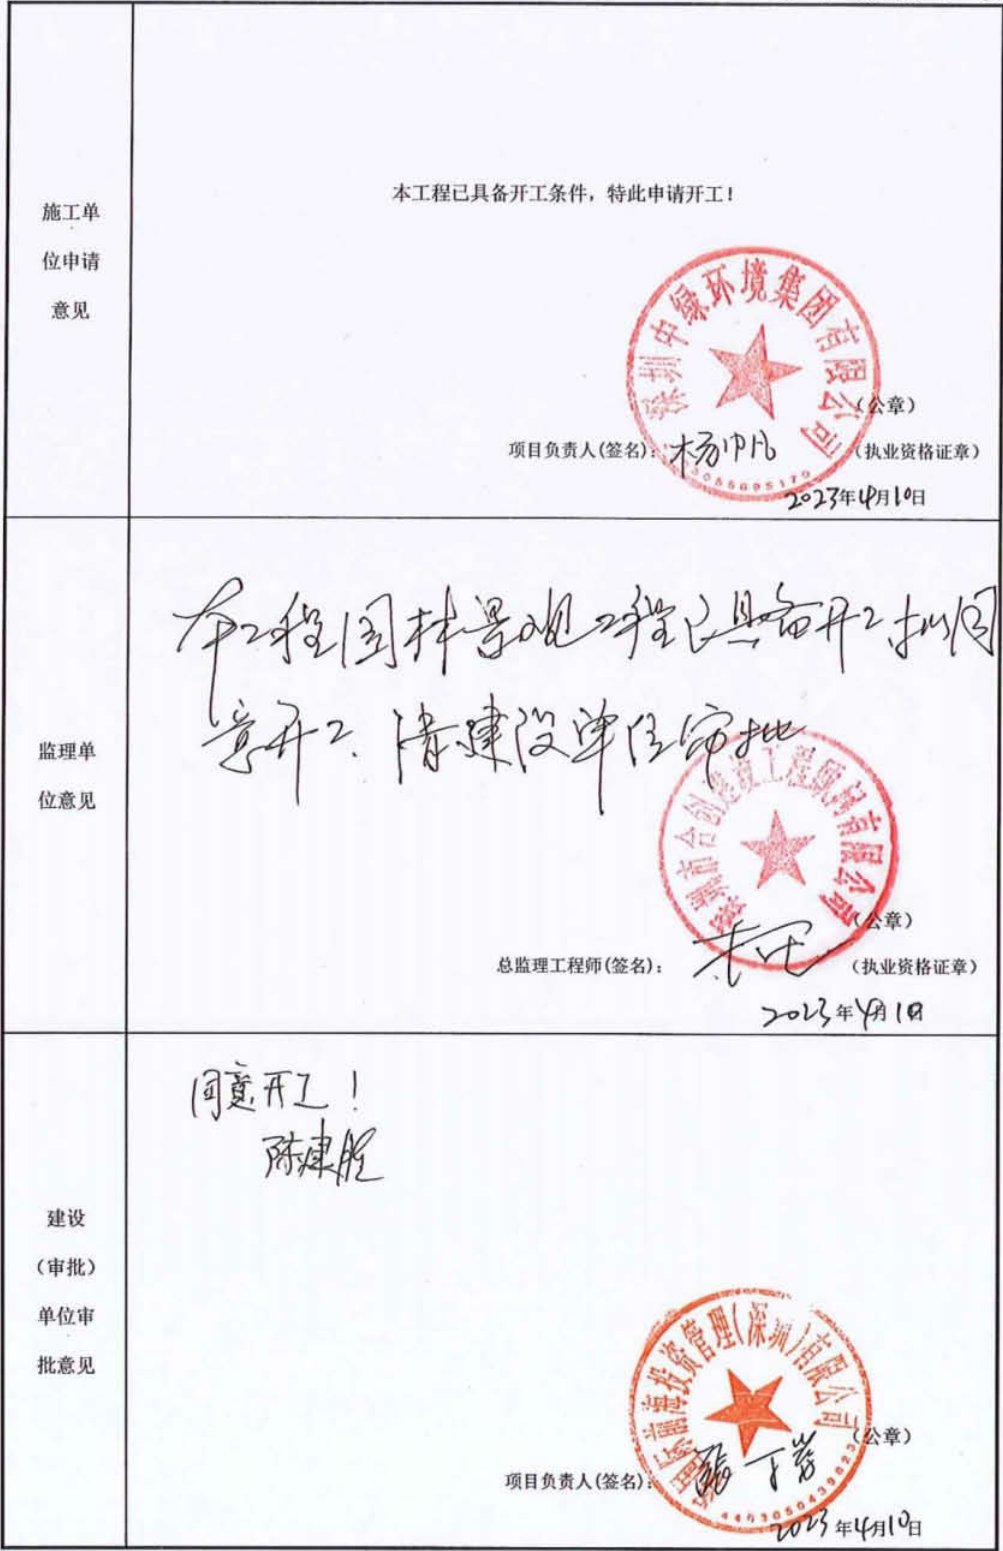 施工单
位申请
意见
本工程已具备开工条件，特此申请开工！
深圳中绿环境集团有限公司
（公章）
项目负责人(签名)：杨帅凡
（执业资格证章）
2023年4月10日
监理单
位意见
本工程园林景观工程已具备开工拟同
意开工. 请建设单位审批
深圳市合创建设工程顾问有限公司
（公章）
总监理工程师(签名)：
（执业资格证章）
2023年4月1日
同意开工！
陈建胜
建设
（审批）
单位审
批意见
前海投资管理(深圳)有限公司
（公章）
项目负责人(签名)：
4403050439823
2023年4月10日